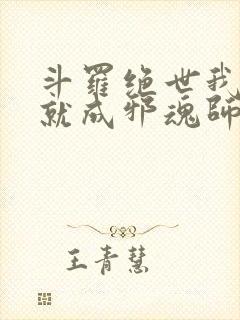 斗羅绝世我
就成邪魂師
王青慧